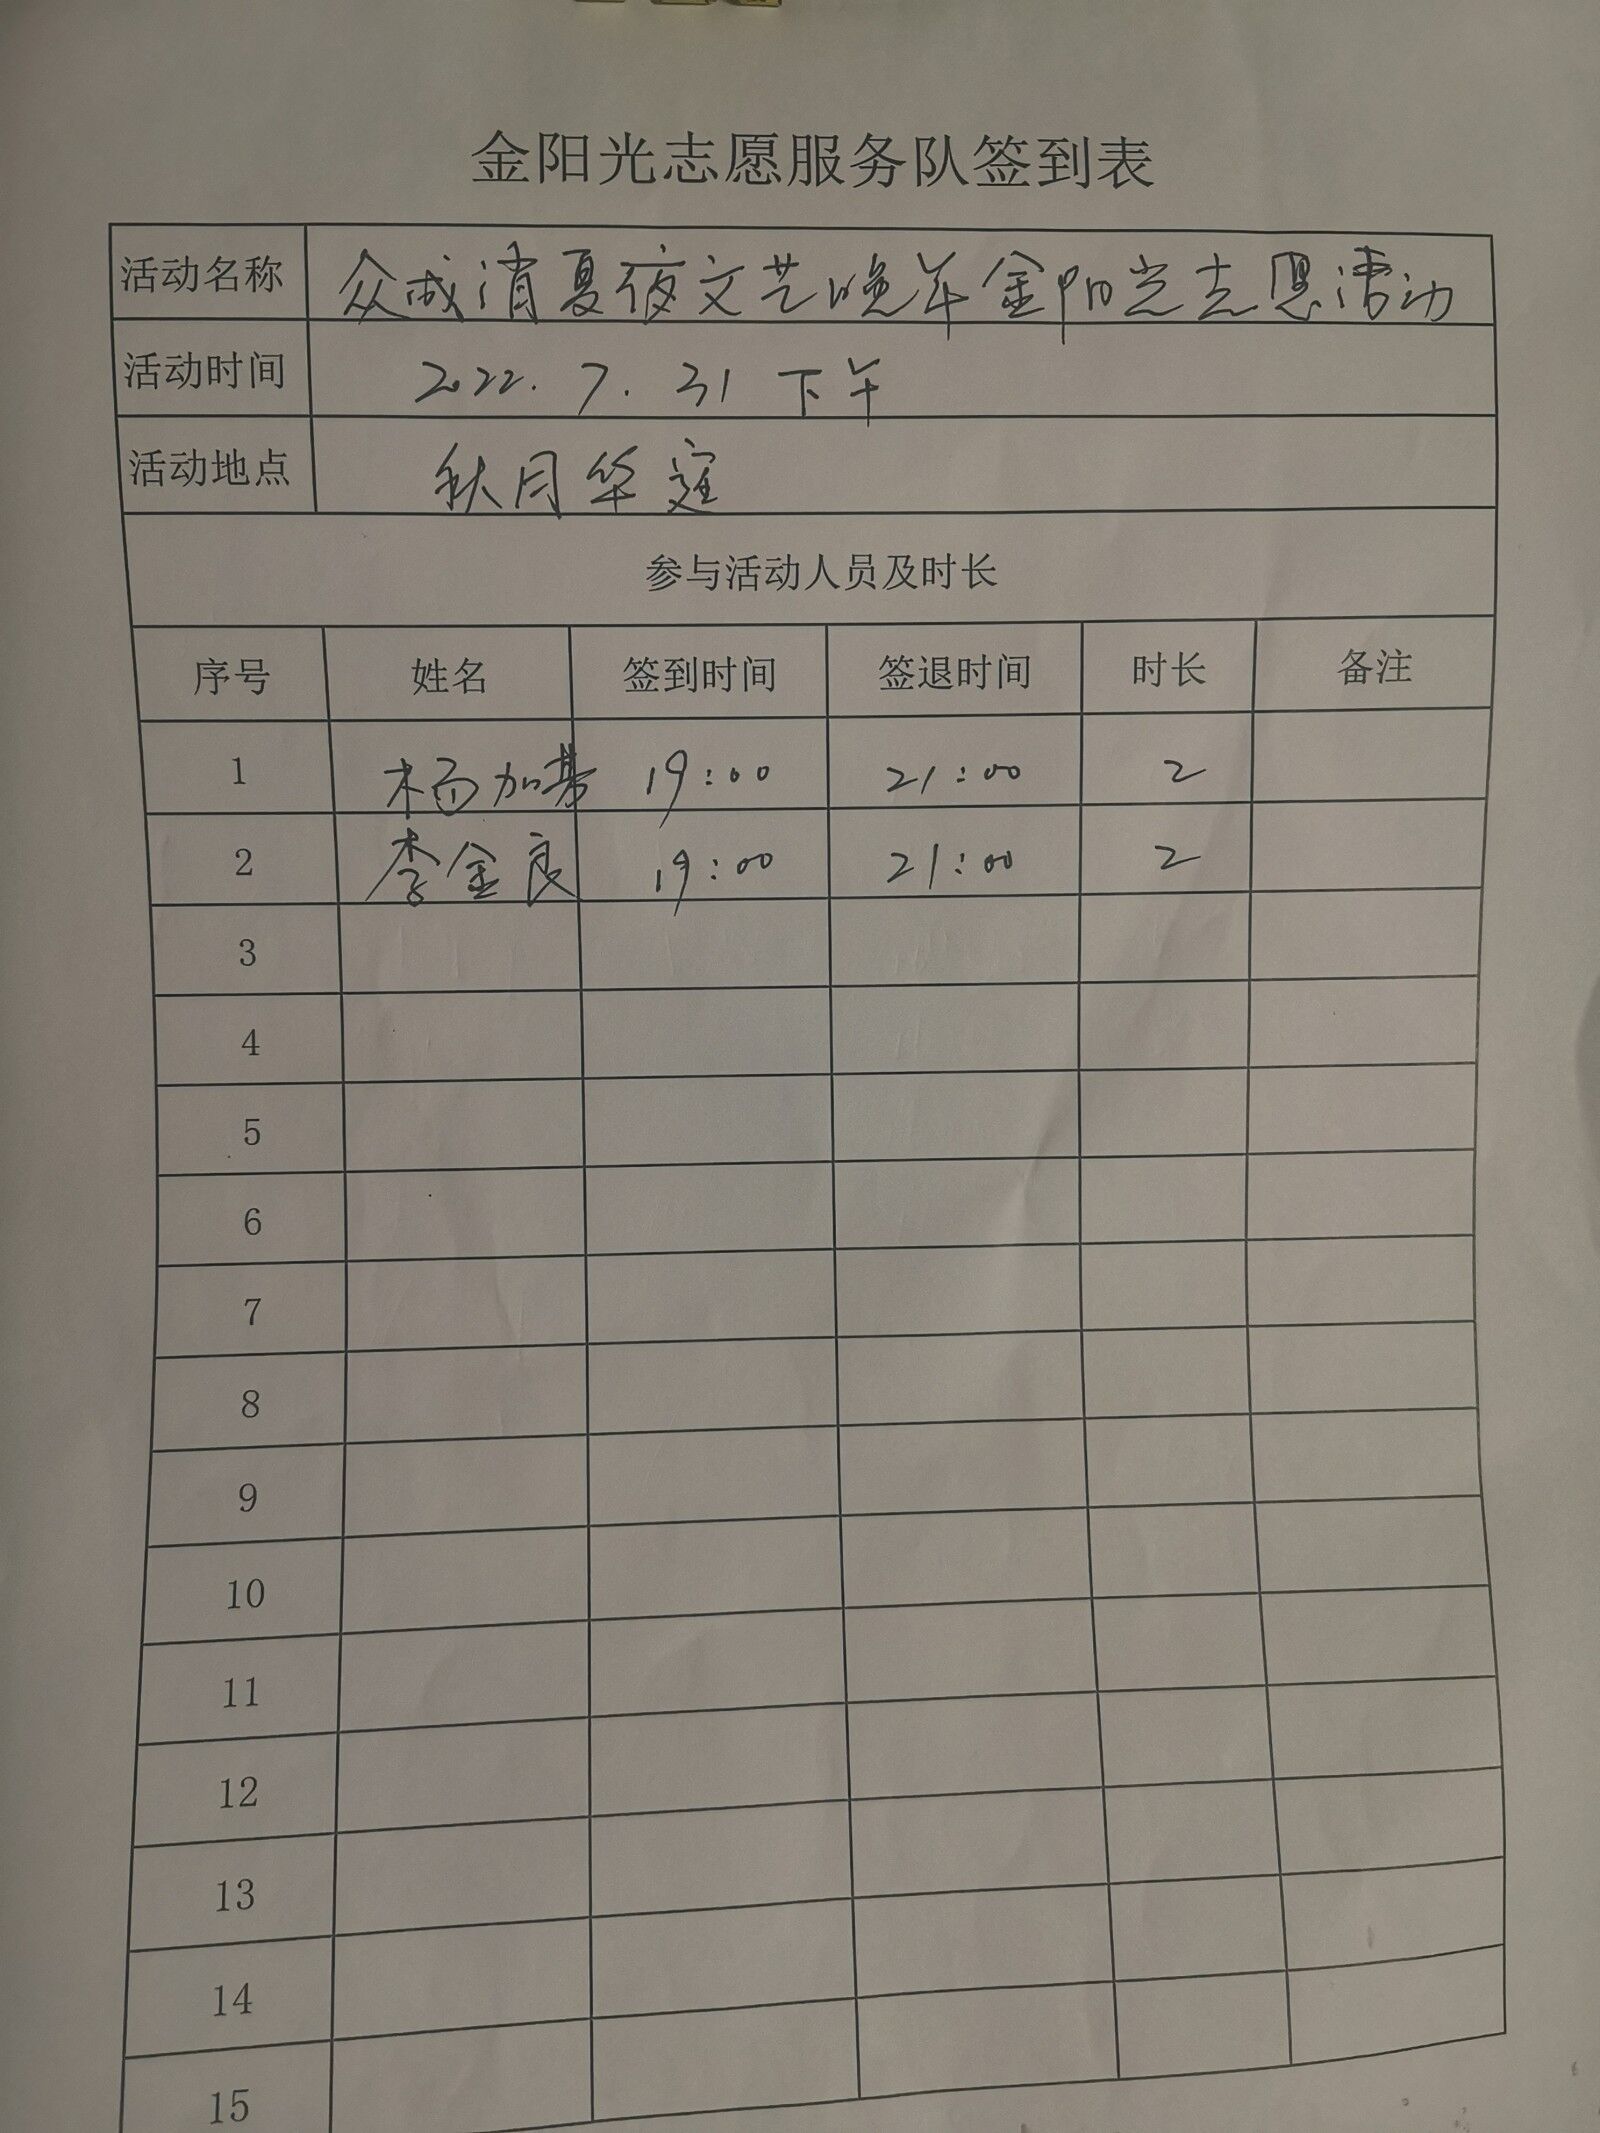 金阳光志愿服务队签到表
活动名称 众成消夏夜文艺晚年金阳光志愿活动
活动时间 2022.7.31 下午
活动地点 秋月华庭
参与活动人员及时长
序号 姓名 签到时间 签退时间 时长 备注
1 杨加基 19:00 21:00 2
2 李金良 19:00 21:00 2
3
4
5
6
7
8
9
10
11
12
13
14
15